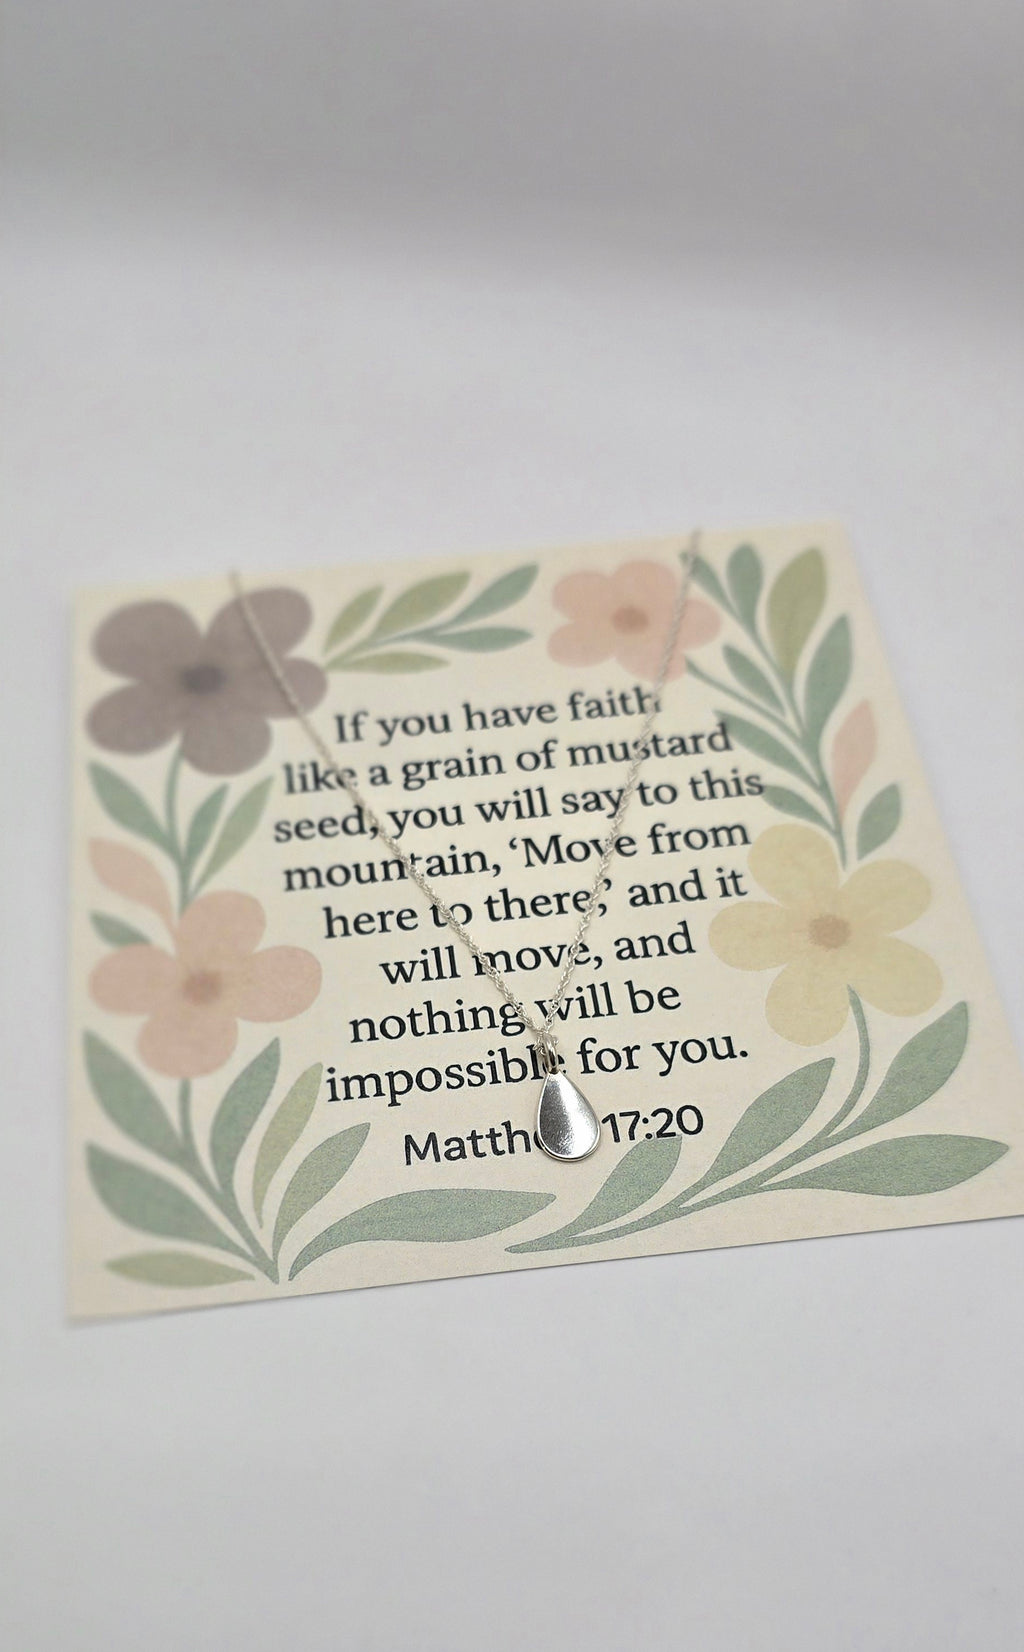 If you have faith
like a grain of mustard
seed, you will say to this
mountain, ‘Move from
here to there,’ and it
will move, and
nothing will be
impossible for you.
Matthew 17:20